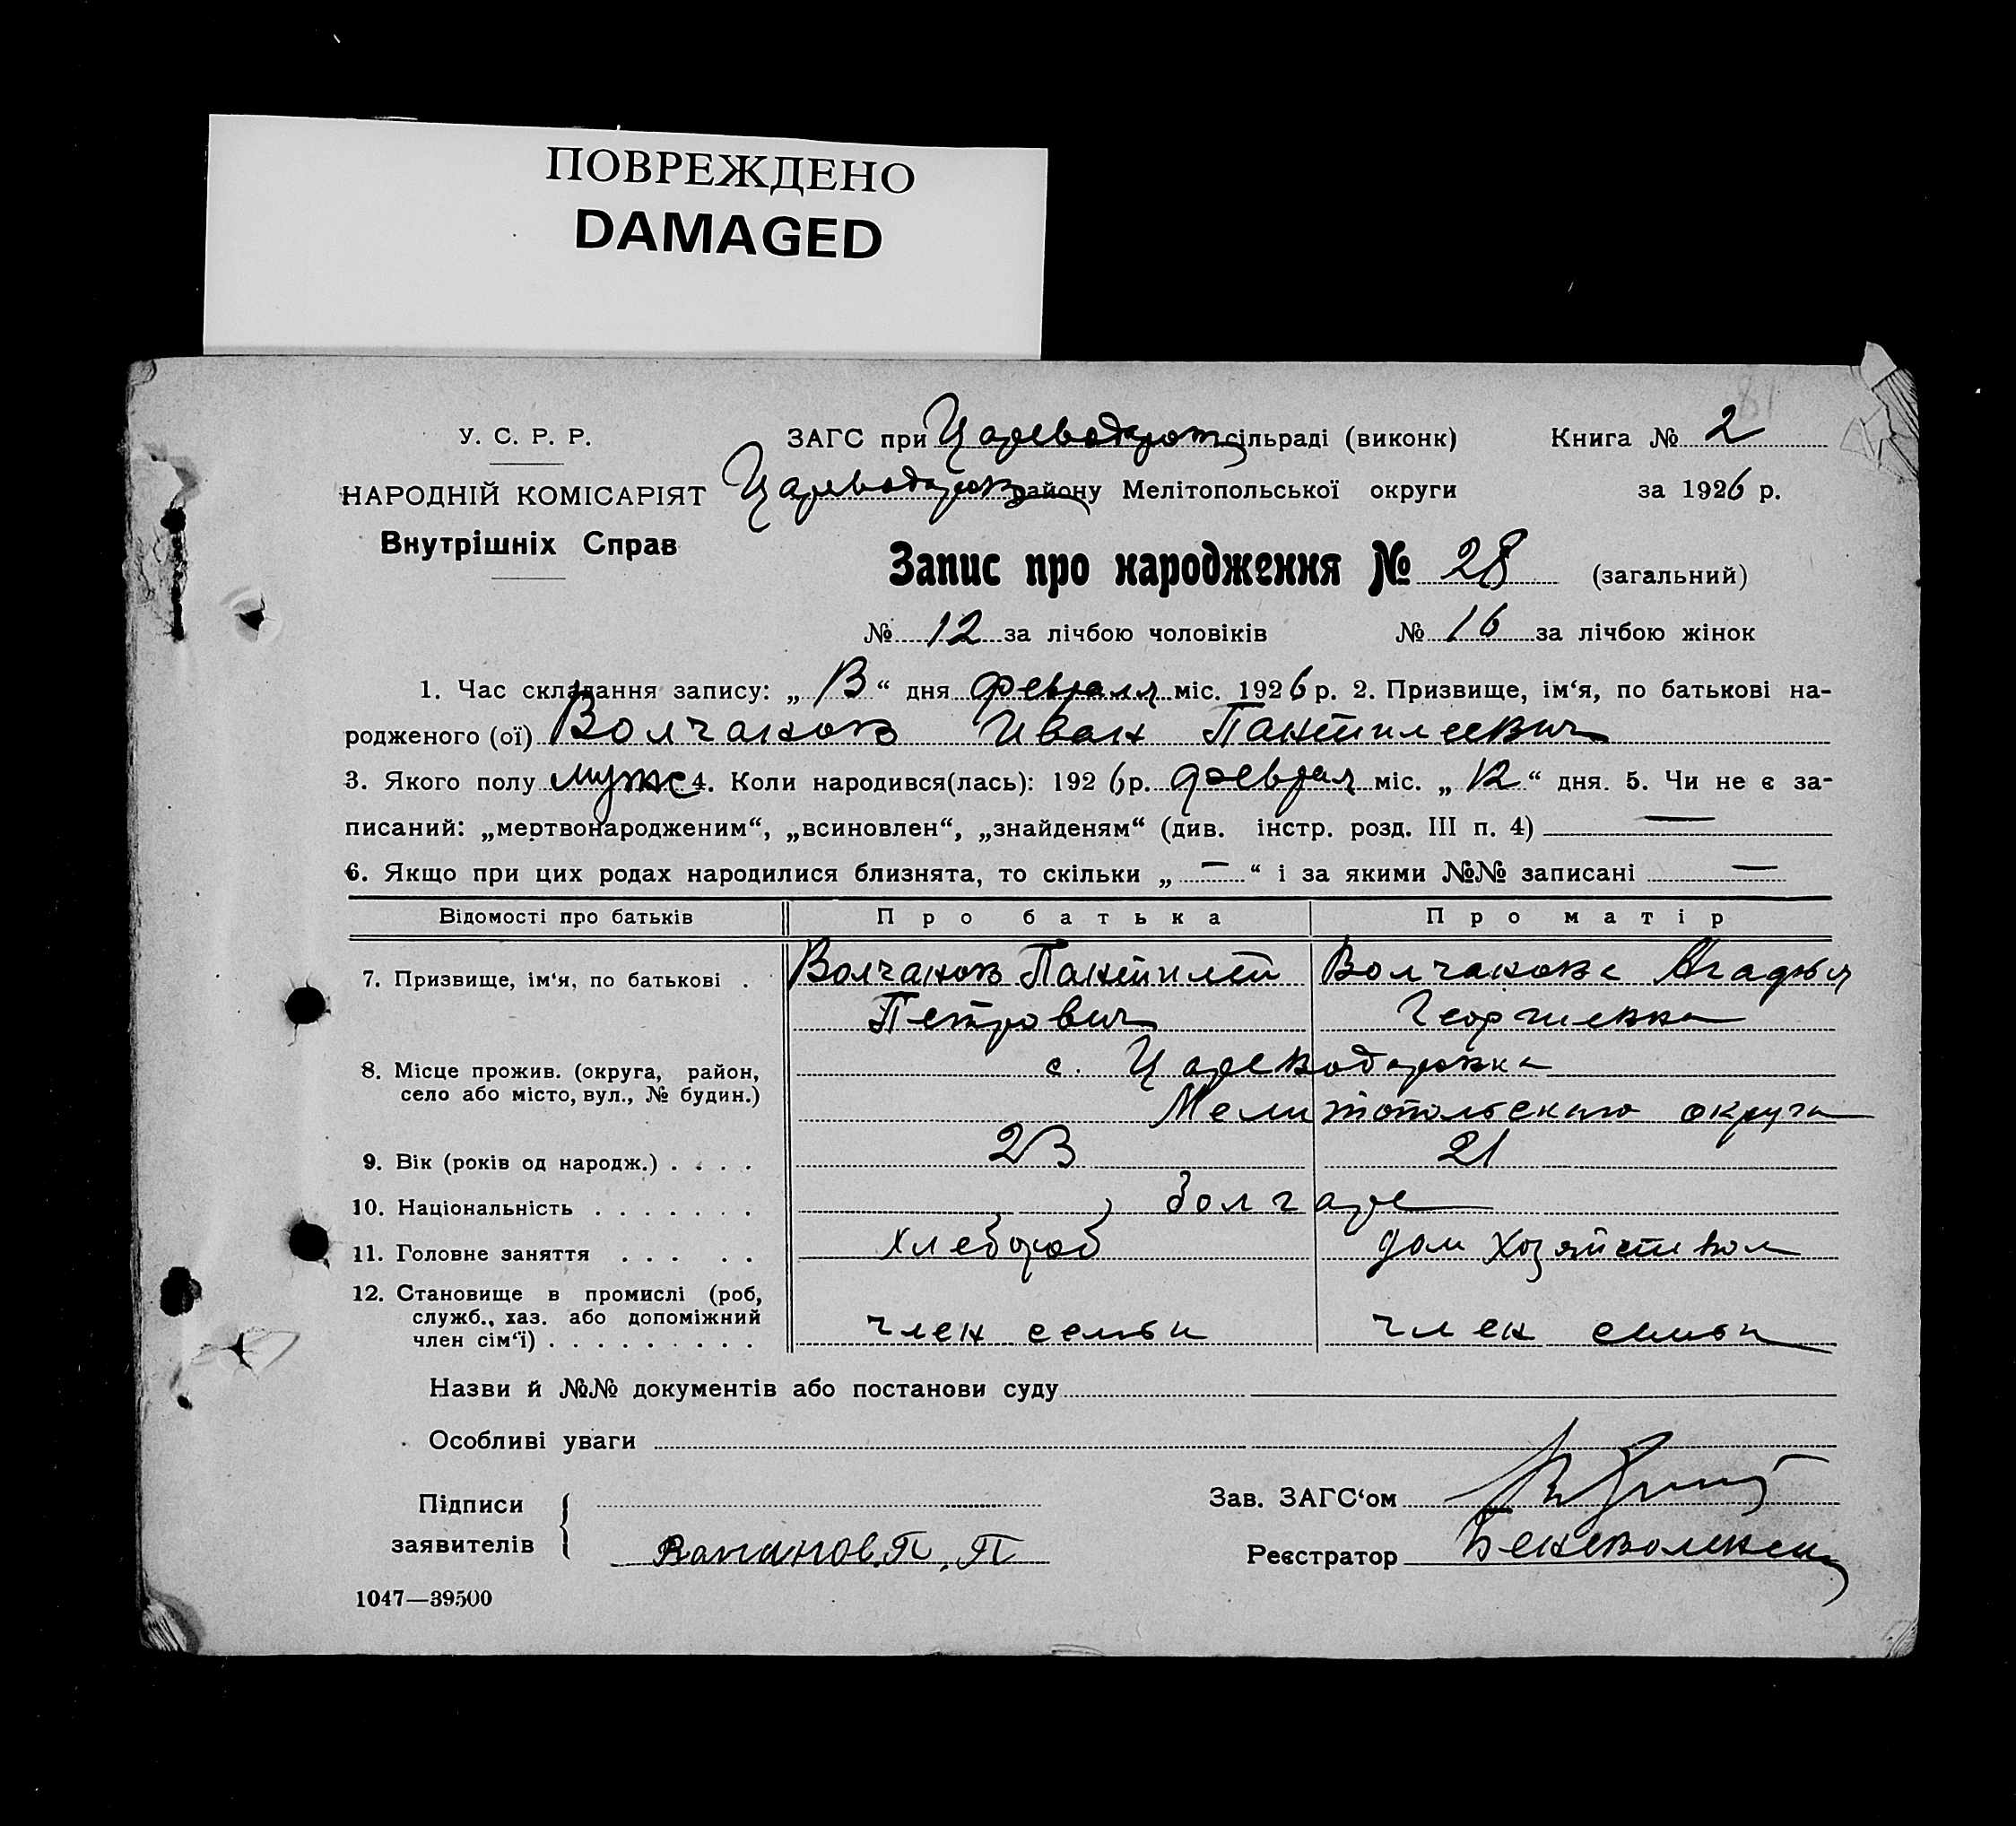 ПОВРЕЖДЕНО
DAMAGED
81
У. С. Р. Р.
ЗАГС при Цареводаров сільраді (виконк) Книга № 2
НАРОДНІЙ КОМІСАРІЯТ Цареводаров району Мелітопольської округи за 1926 р.
Внутрішніх Справ
Запис про народження № 28 (загальний)
№ 12 за лічбою чоловіків № 16 за лічбою жінок
1. Час складання запису: „ 13 “ дня февраля міс. 1926 р. 2. Призвище, ім‘я, по батькові на-
родженого (ої) Волчанов Иван Пантилеевич
3. Якого полу муж 4. Коли народився(лась): 1926 р. февраля міс. „ 12 “ дня. 5. Чи не є за-
писаний: „мертвонародженим“, „всиновлен“, „знайденям“ (див. інстр. розд. III п. 4) —
6. Якщо при цих родах народилися близнята, то скільки „ — “ і за якими №№ записані —
Відомості про батьків Про батька Про матір
7. Призвище, ім‘я, по батькові . Волчанов Пантилей Волчанова Агафья
Петрович Георгиевна
8. Місце прожив. (округа, район, с. Цареводаровка
село або місто, вул., № будин.) Мелитопольского округа
9. Вік (років од народж.) . . . . 23 21
10. Національність . . . . . . . болгаре
11. Головне заняття . . . . . хлебороб дом хозяйством
12. Становище в промислі (роб,
служб., хаз. або допоміжний
член сім‘ї) . . . . . . . . . член семьи член семьи
Назви й №№ документів або постанови суду
Особливі уваги
Підписи Зав. ЗАГС‘ом
заявителів Волчанов П. П Реєстратор
1047—39500